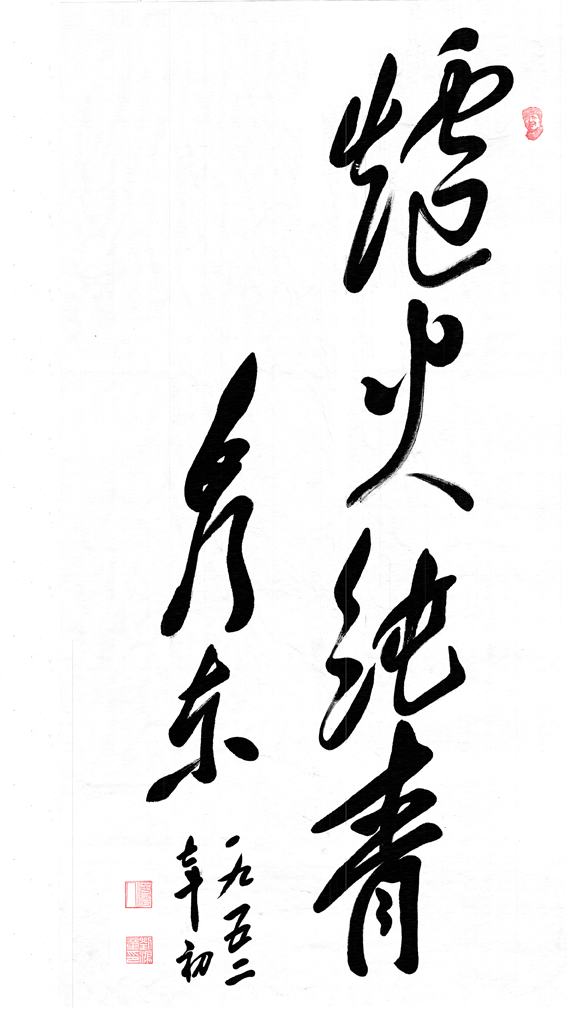 爐火纯青
秀东
一九五二
年初